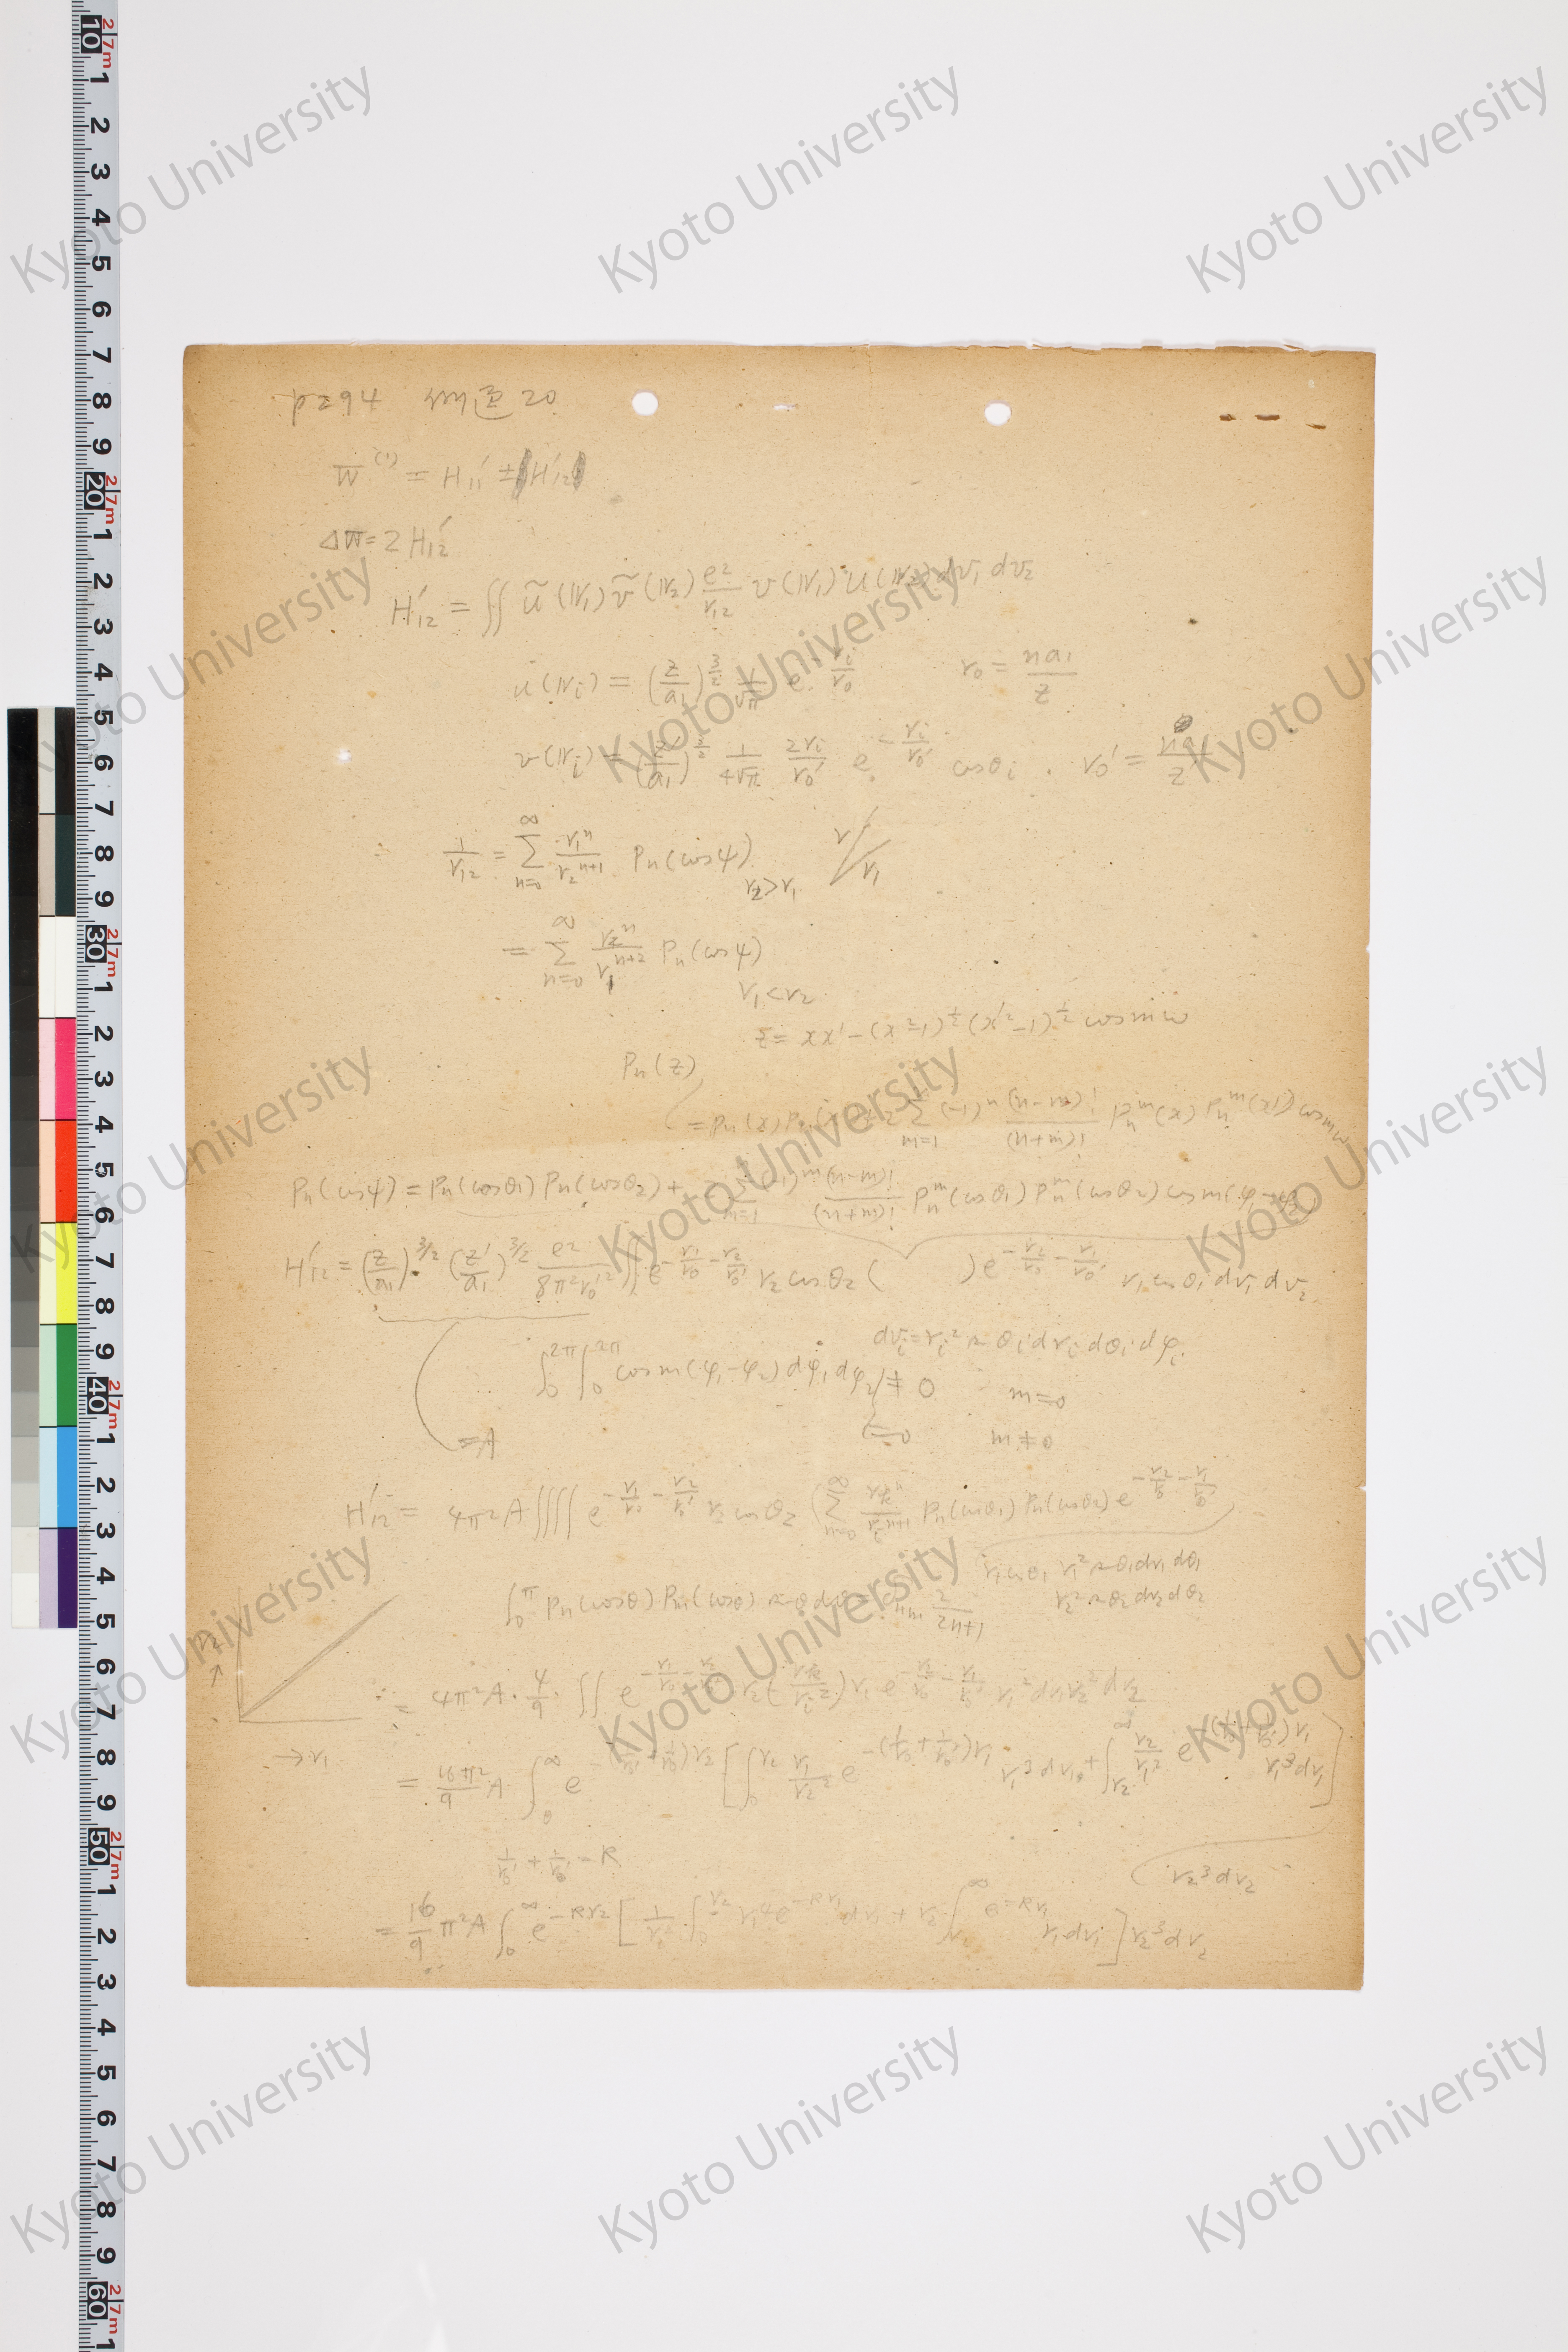 p294 問題 20
W⁽¹⁾ = H₁₁′ ± H₁₂′
ΔW = 2 H₁₂′
H₁₂′ = ∬ ũ(r₁) ṽ(r₂) e²/r₁₂ v(r₁) u(r₂) dv₁ dv₂
u(rᵢ) = (Z/a₁)^{3/2} 1/√π e^{-rᵢ/r₀}   r₀ = na₁/Z
v(rᵢ) = (Z′/a₁)^{3/2} 1/(4√π) 2rᵢ/r₀′ e^{-rᵢ/r₀′} cosθᵢ .  r₀′ = na₁/Z′
1/r₁₂ = Σ_{n=0}^{∞} r₁ⁿ/r₂^{n+1} Pₙ(cosψ)   r₂ > r₁   r / r₁
= Σ_{n=0}^{∞} r₂ⁿ/r₁^{n+2} Pₙ(cosψ)
r₁ < r₂
z = xx′ − (x²−1)^{1/2} (x′²−1)^{1/2} cos m ω
Pₙ(z)
= Pₙ(x) Pₙ(x′) + 2 Σ_{m=1} (−1)ⁿ (n−m)!/(n+m)! Pₙᵐ(x) Pₙᵐ(x′) cos mω
Pₙ(cosψ) = Pₙ(cosθ₁) Pₙ(cosθ₂) + 2 Σ_{m=1} (−1)ᵐ (n−m)!/(n+m)! Pₙᵐ(cosθ₁) Pₙᵐ(cosθ₂) cos m(φ₁−φ₂)
H₁₂′ = (Z/a₁)^{3/2} (Z′/a₁)^{3/2} e²/(8π²r₀′²) ∬ e^{-r₁/r₀ − r₂/r₀′} r₂ cosθ₂ (   ) e^{-r₂/r₀ − r₁/r₀′} r₁ cosθ₁ dv₁ dv₂
dvᵢ = rᵢ² sin θᵢ drᵢ dθᵢ dφᵢ
∫₀^{2π} ∫₀^{2π} cos m(φ₁−φ₂) dφ₁ dφ₂ ≠ 0   m = 0
= A   = 0   m ≠ 0
H₁₂′ = 4π²A ∬∬ e^{-r₁/r₀ − r₂/r₀′} r₂ cosθ₂ (Σ_{n=0}^{∞} Pₙ(cosθ₁) Pₙ(cosθ₂) e^{-r₂/r₀ − r₁/r₀′}
r₁ cosθ₁ r₁² sin θ₁ dr₁ dθ₁
r₂² sin θ₂ dr₂ dθ₂
∫₀^π Pₙ(cosθ) Pₘ(cosθ) sin θ dθ = δₙₘ 2/(2n+1)
r₂
↑
= 4π²A · 4/9 · ∬ e^{-r₁/r₀ − r₂/r₀′} r₂ ( ) r₁ e^{-r₂/r₀ − r₁/r₀′} r₁² dr₁ r₂² dr₂
→ r₁
= 16π²/9 A ∫₀^∞ e^{-(1/r₀ + 1/r₀′) r₂} [ ∫₀^{r₂} r₁/r₂² e^{-(1/r₀ + 1/r₀′) r₁} r₁³ dr₁ + ∫_{r₂}^∞ r₂/r₁² e^{-(1/r₀ + 1/r₀′) r₁} r₁³ dr₁ ]
r₂³ dr₂
1/r₀ + 1/r₀′ = R
= 16/9 π²A ∫₀^∞ e^{-Rr₂} [ 1/r₂² ∫₀^{r₂} r₁⁴ e^{-Rr₁} dr₁ + r₂ ∫_{r₂}^∞ e^{-Rr₁} r₁ dr₁ ] r₂³ dr₂
Kyoto University